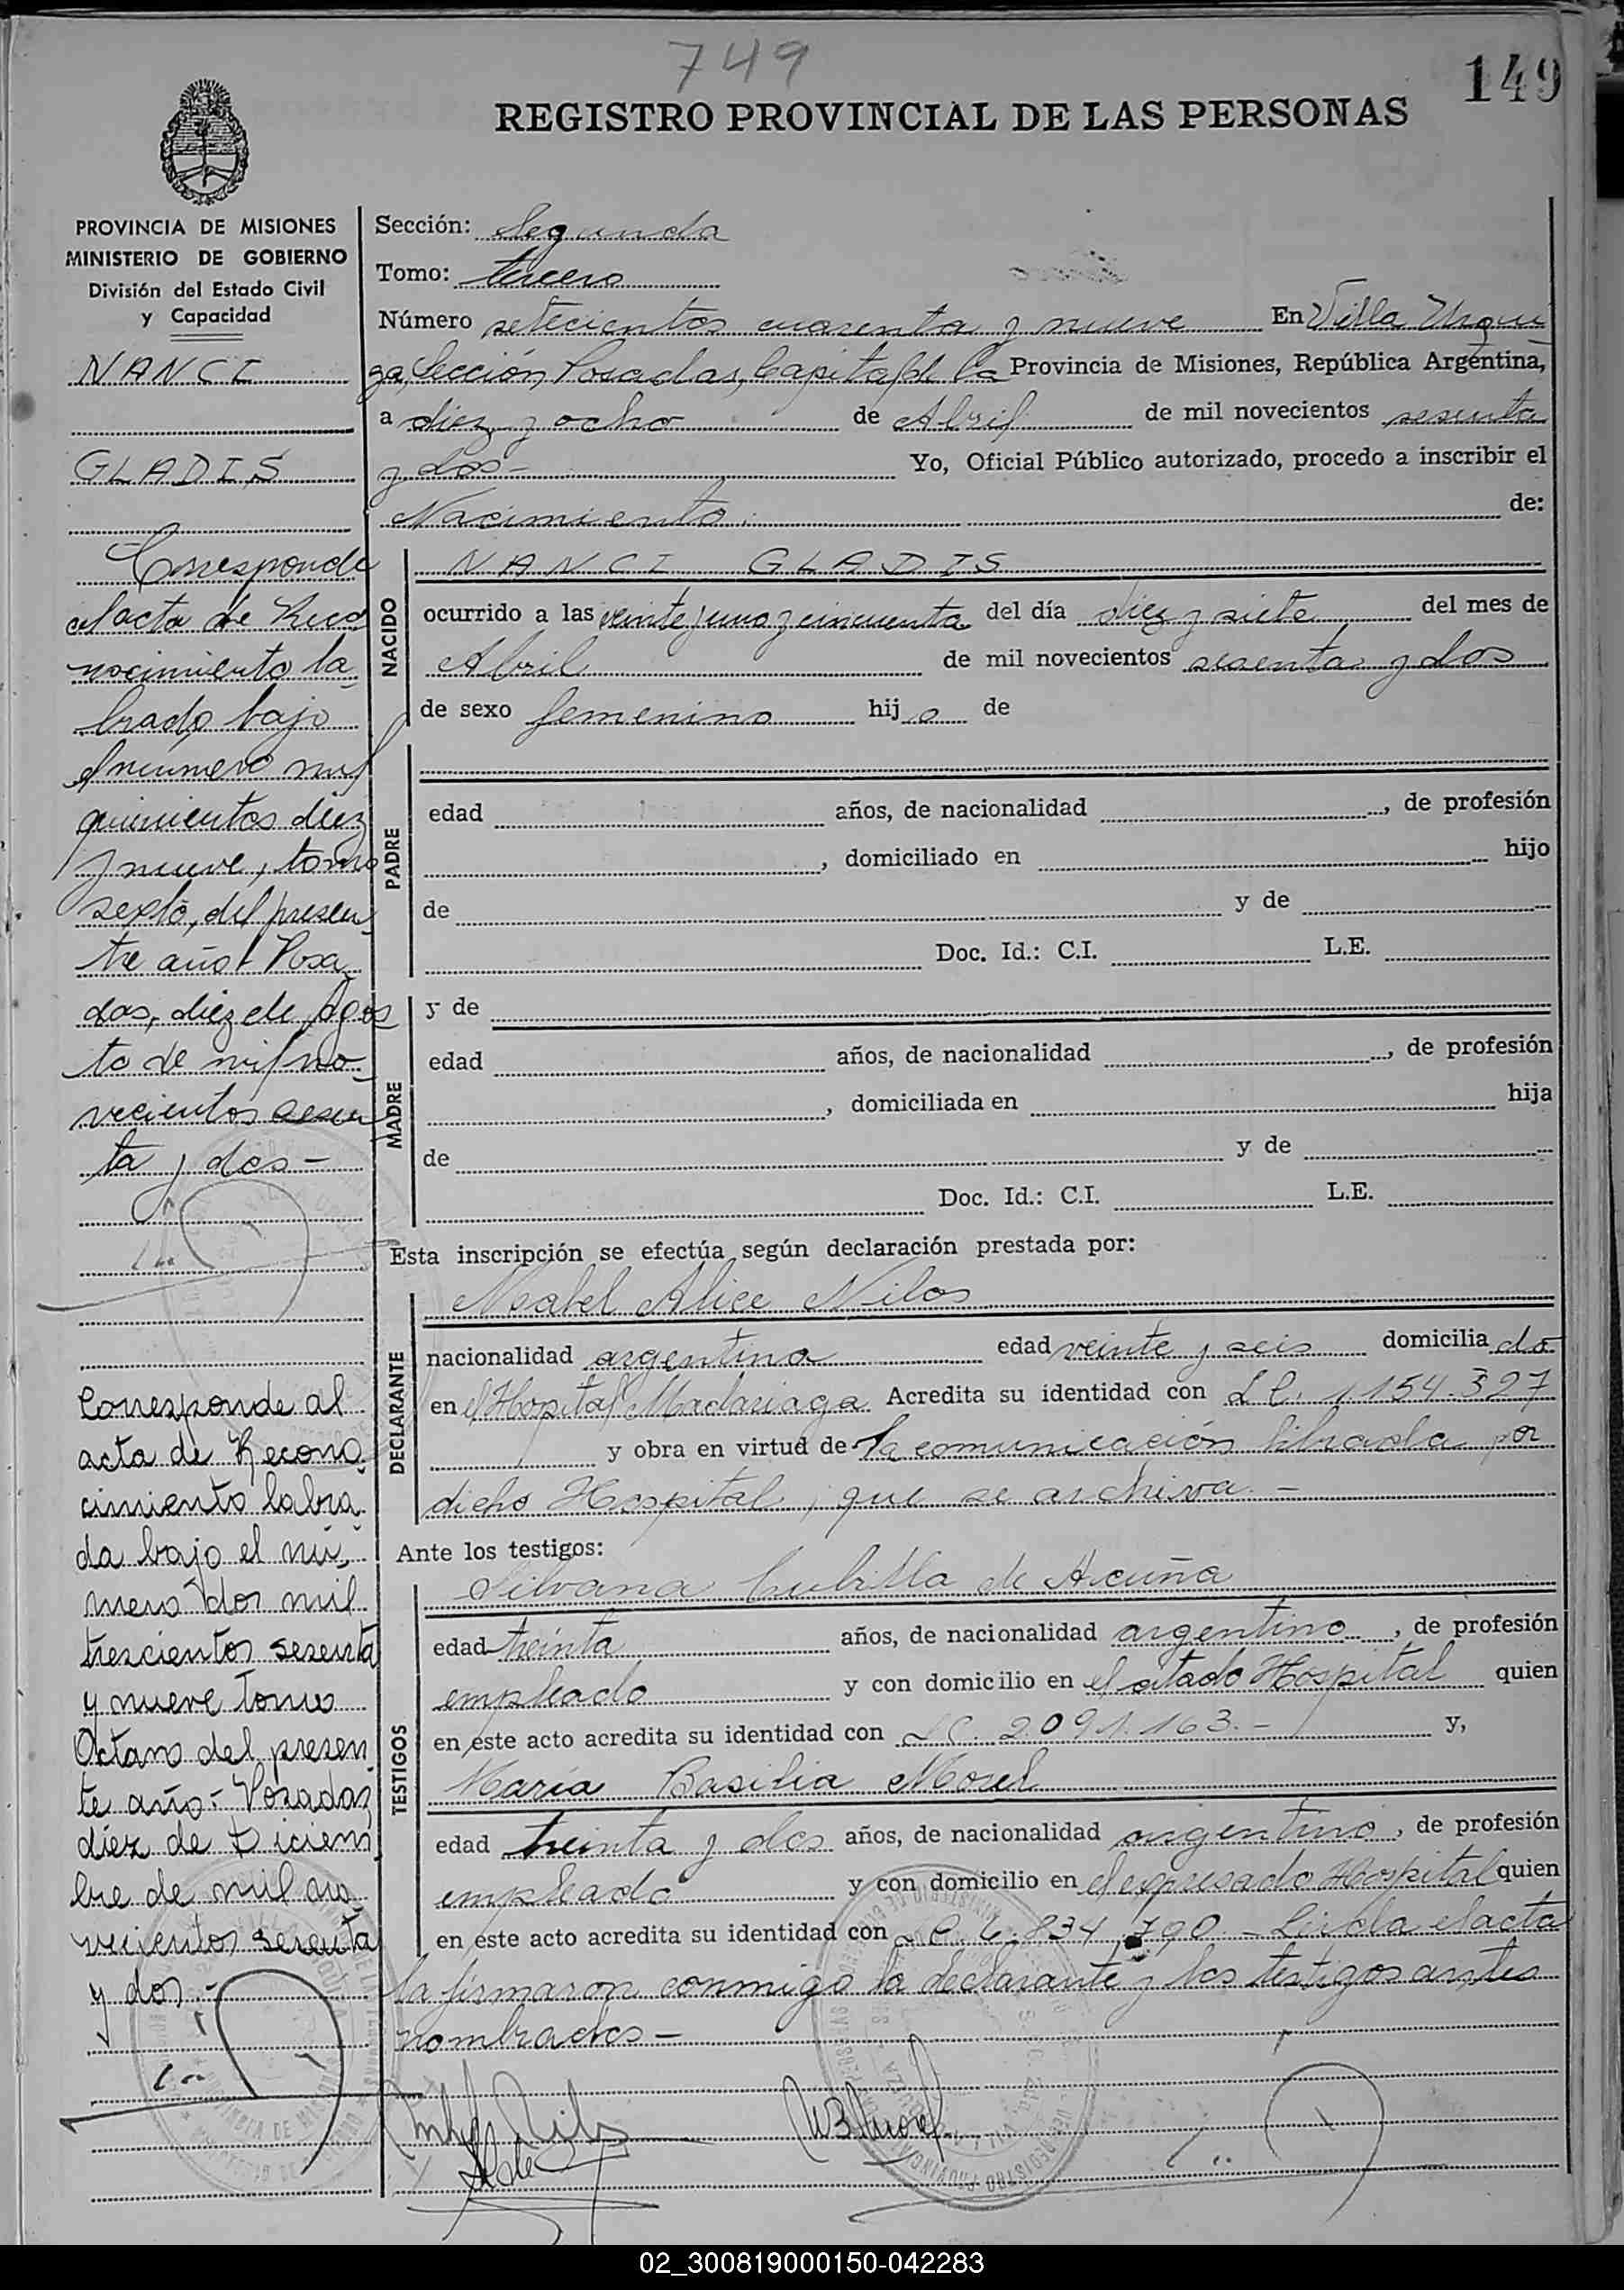 749
149
REGISTRO PROVINCIAL DE LAS PERSONAS
PROVINCIA DE MISIONES
MINISTERIO DE GOBIERNO
División del Estado Civil
y Capacidad
NANCI
GLADIS
Corresponde
al acta de Reco
nocimiento la
brado bajo
el numero mil
quinientos diez
y nueve, tomo
sexto, del presen
te año. Posa
das, diez de Agos
to de mil no
vecientos sesen
ta y dos -
Corresponde al
acta de Recono
cimiento labra
da bajo el nú
mero dos mil
trescientos sesenta
y nueve tomo
Octavo del presen
te año.- Posadas
diez de Diciem
bre de mil no
vecientos sesenta
y dos.-
Sección: Segunda
Tomo: tercero
Número setecientos cuarenta y nueve En Villa Urqui
za, Sección Posadas, Capital de la Provincia de Misiones, República Argentina,
a diez y ocho de Abril de mil novecientos sesenta
y dos- Yo, Oficial Público autorizado, procedo a inscribir el
Nacimiento de:
NACIDO
NANCI GLADIS
ocurrido a las veinte y uno y cincuenta del día diez y siete del mes de
Abril de mil novecientos sesenta y dos
de sexo femenino hij o de
PADRE
edad años, de nacionalidad , de profesión
, domiciliado en hijo
de y de
Doc. Id.: C.I. L.E.
MADRE
y de
edad años, de nacionalidad , de profesión
, domiciliada en hija
de y de
Doc. Id.: C.I. L.E.
Esta inscripción se efectúa según declaración prestada por:
DECLARANTE
Mabel Alice Nilos
nacionalidad argentina edad veinte y seis domicilia do
en el Hospital Madariaga Acredita su identidad con L C. 1.154.327
y obra en virtud de la comunicación librada por
dicho Hospital, que se archiva. -
Ante los testigos:
TESTIGOS
Silvana Cubilla de Acuña
edad treinta años, de nacionalidad argentino , de profesión
empleado y con domicilio en el citado Hospital quien
en este acto acredita su identidad con L C. 2.091.163.- y,
María Basilia Morel
edad treinta y dos años, de nacionalidad argentino , de profesión
empleado y con domicilio en el expresado Hospital quien
en este acto acredita su identidad con L C 6.834.790 - Leída el acta
la firmaron conmigo la declarante y los testigos antes
nombrados -
02_300819000150-042283